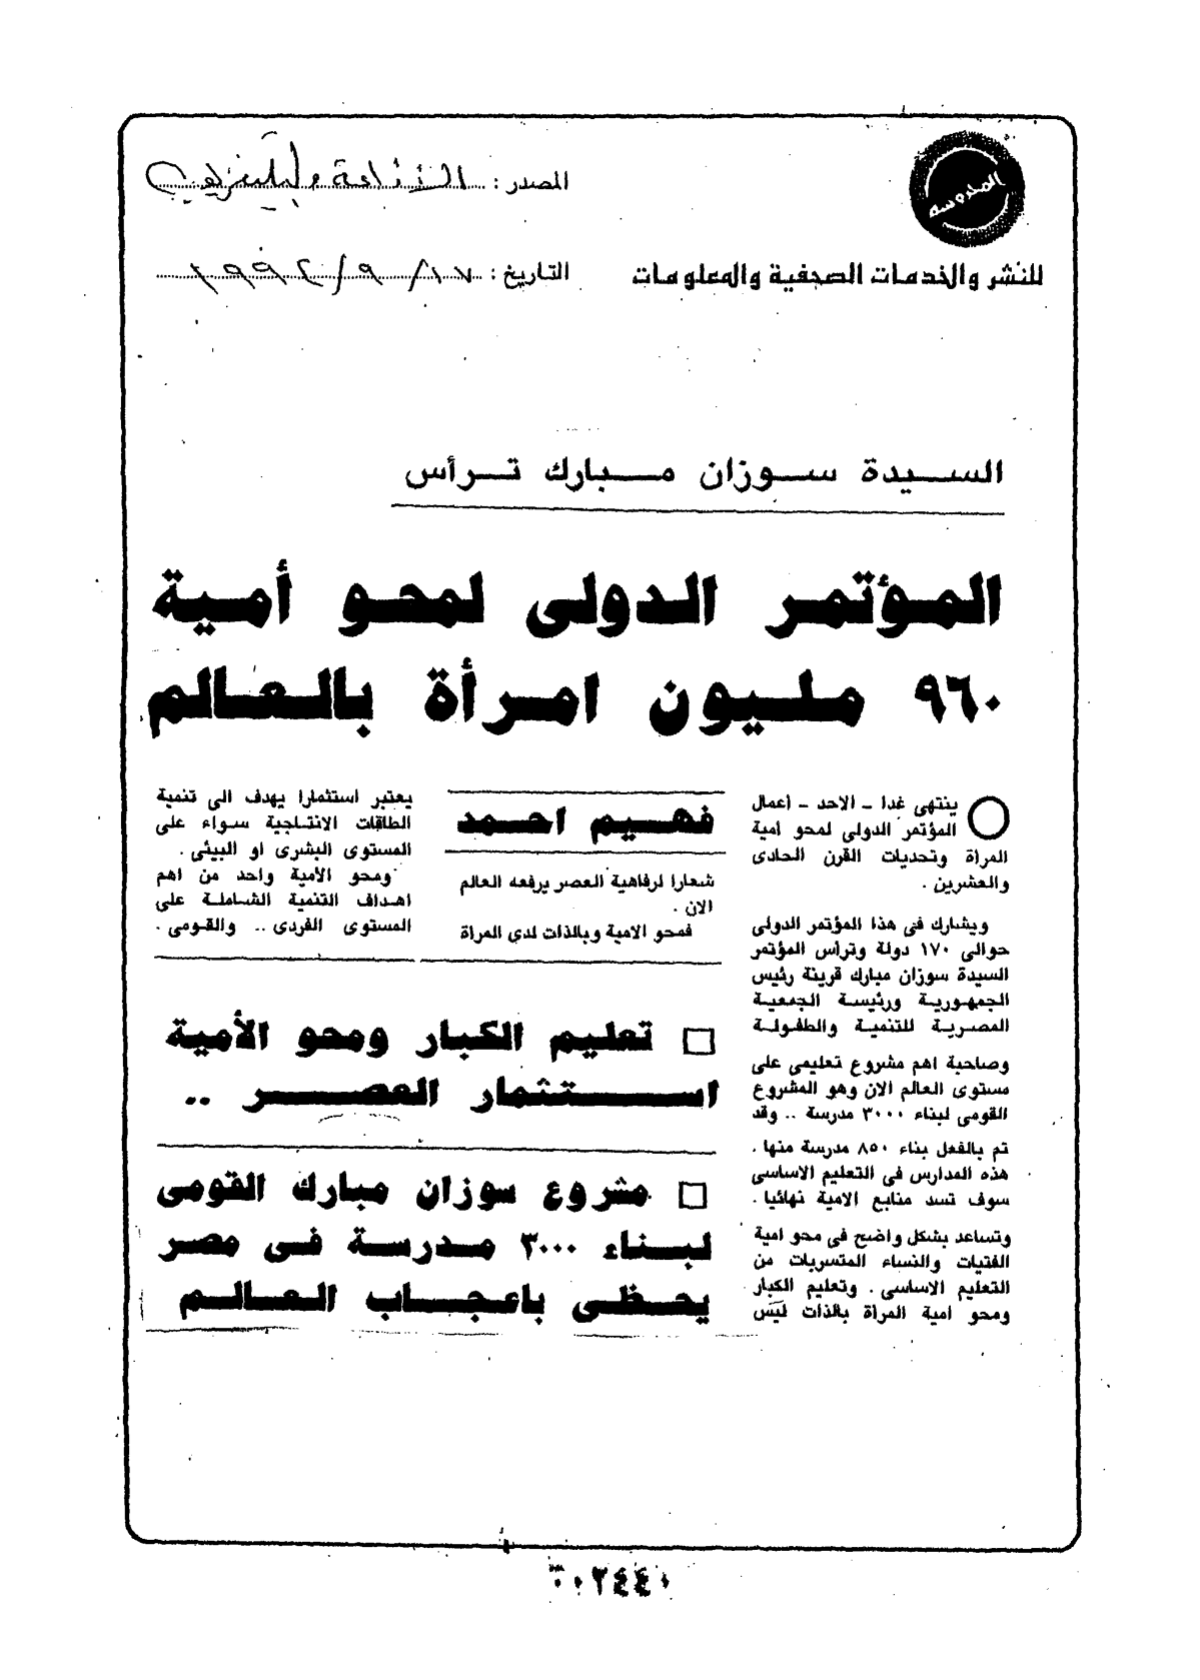 المحروسة
المصدر : الإذاعة والتليفزيون
للنشر والخدمات الصحفية والمعلومات
التاريخ : ١٧ / ٩ / ١٩٩٢
السيدة سوزان مبارك ترأس
المؤتمر الدولى لمحو أمية
٩٦٠ مليون امرأة بالعالم
ينتهى غدا - الاحد - أعمال
المؤتمر الدولى لمحو أمية
المرأة وتحديات القرن الحادى
والعشرين .
ويشارك فى هذا المؤتمر الدولى
حوالى ١٧٠ دولة وترأس المؤتمر
السيدة سوزان مبارك قرينة رئيس
الجمهورية ورئيسة الجمعية
المصرية للتنمية والطفولة
وصاحبة اهم مشروع تعليمى على
مستوى العالم الان وهو المشروع
القومى لبناء ٣٠٠٠ مدرسة .. وقد
تم بالفعل بناء ٨٥٠ مدرسة منها .
هذه المدارس فى التعليم الاساسى
سوف تسد منابع الامية نهائيا .
وتساعد بشكل واضح فى محو امية
الفتيات والنساء المتسربات من
التعليم الاساسى . وتعليم الكبار
ومحو امية المرأة بالذات ليس
فهيم احمد
شعارا لرفاهية العصر يرفعه العالم
الان .
فمحو الامية وبالذات لدى المرأة
يعتبر استثمارا يهدف الى تنمية
الطاقات الانتاجية سواء على
المستوى البشرى او البيئى .
ومحو الامية واحد من اهم
اهداف التنمية الشاملة على
المستوى الفردى .. والقومى .
□ تعليم الكبار ومحو الأمية
استثمار العصر ..
□ مشروع سوزان مبارك القومى
لبناء ٣٠٠٠ مدرسة فى مصر
يحظى باعجاب العالم